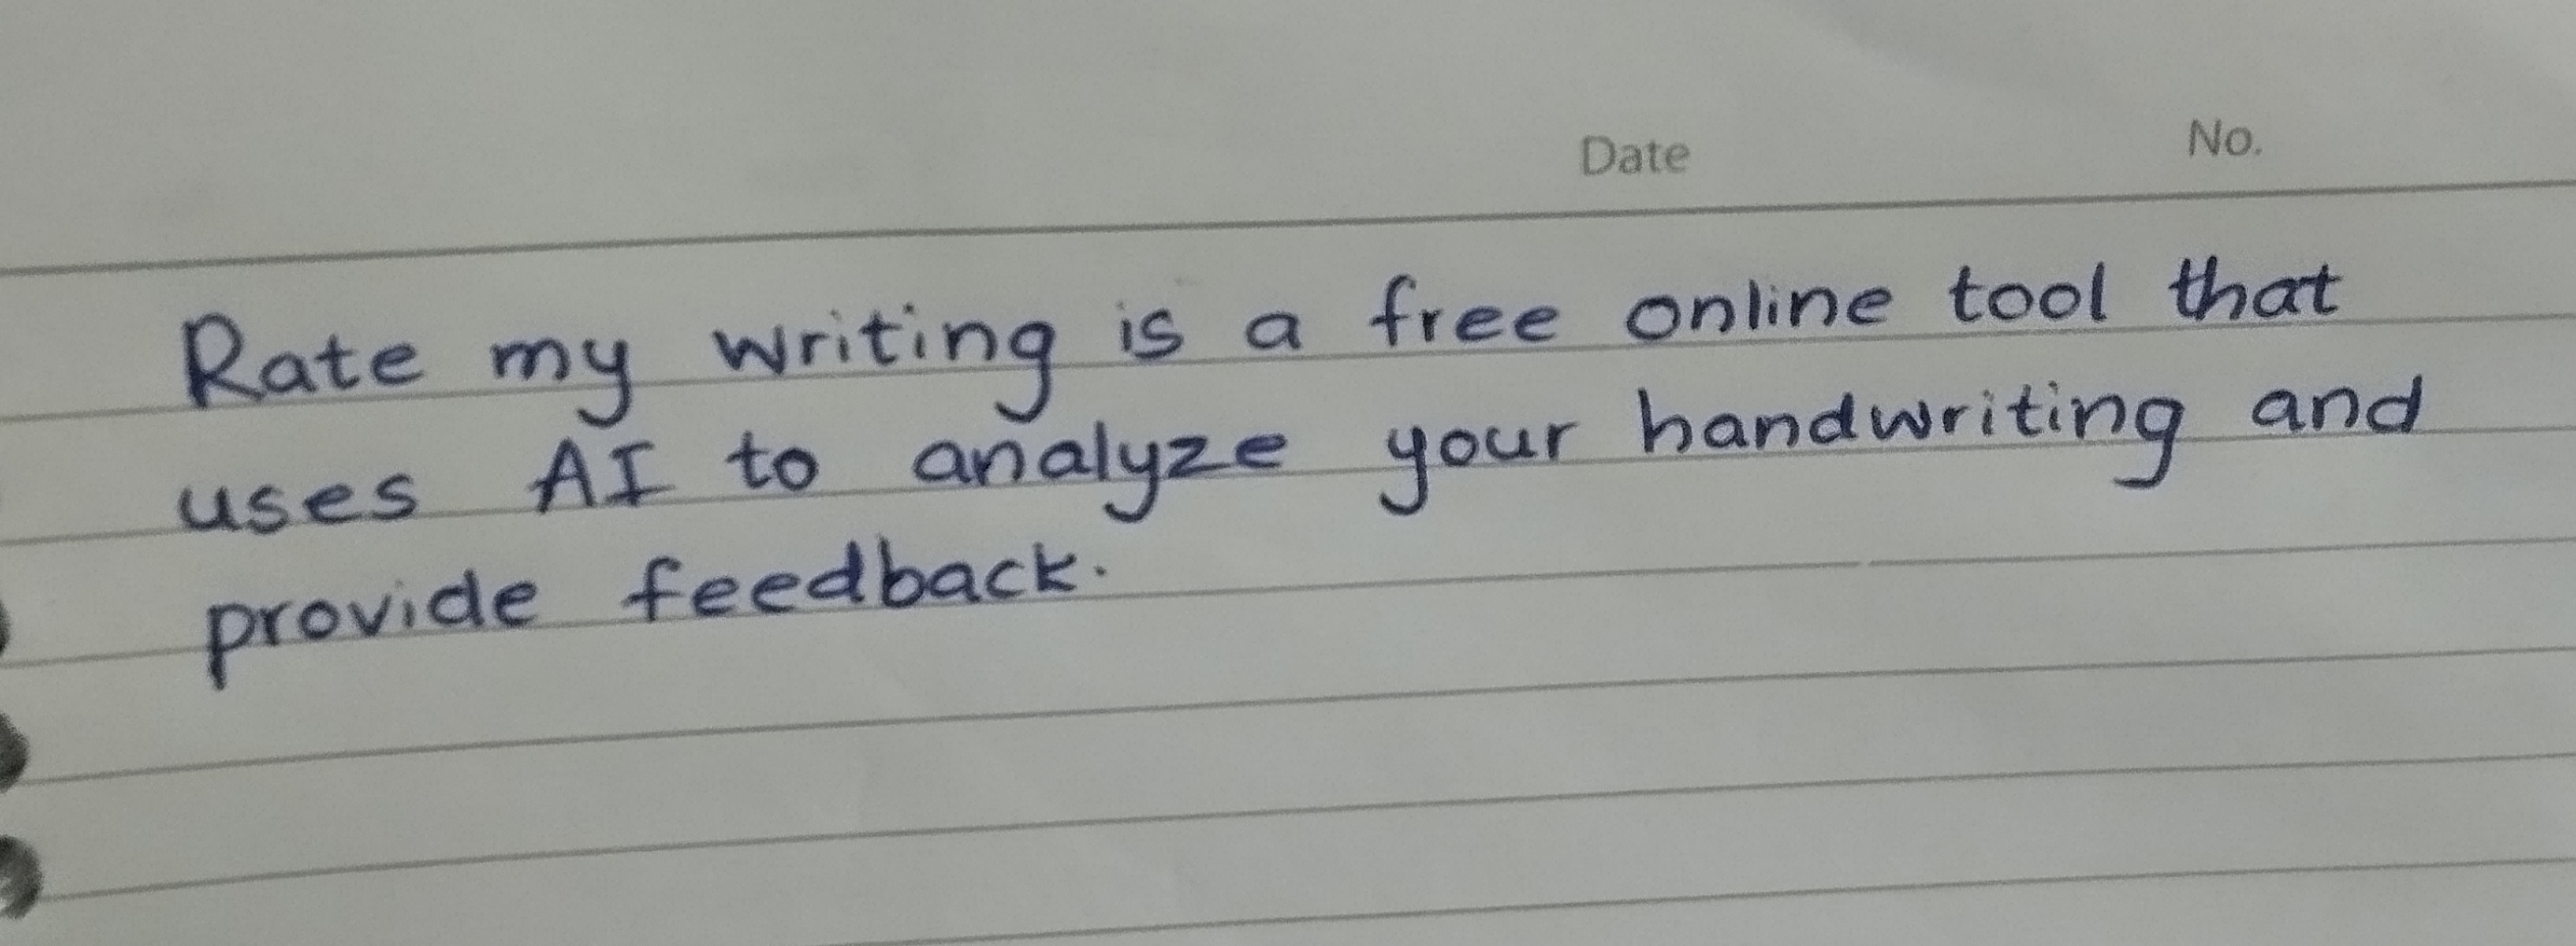 Date No.
Rate my writing is a free online tool that
uses AI to analyze your handwriting and
provide feedback.